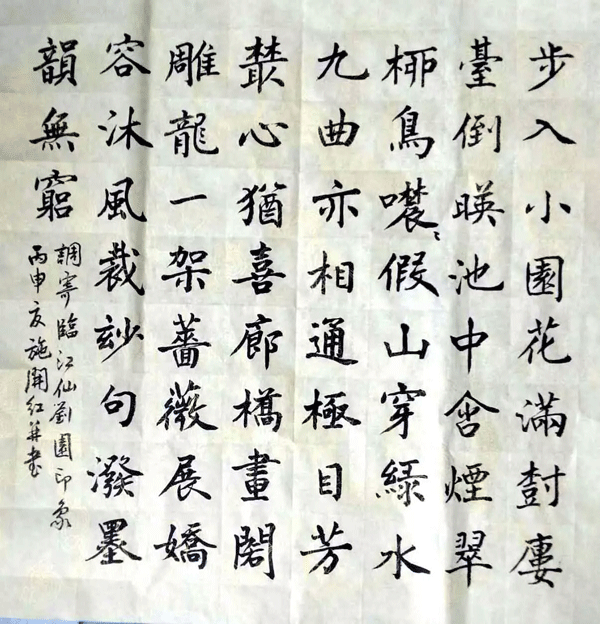 步入小園花滿尌廔
臺倒暎池中含煙翠
桺鳥噥〻假山穿綠水
九曲亦相通極目芳
藂心猶喜廊橋畫閣
雕龍一架薔薇展嬌
容沐風裁玅句潑墨
韻無窮
調寄臨江仙劉園印象
丙申夏施開紅并書